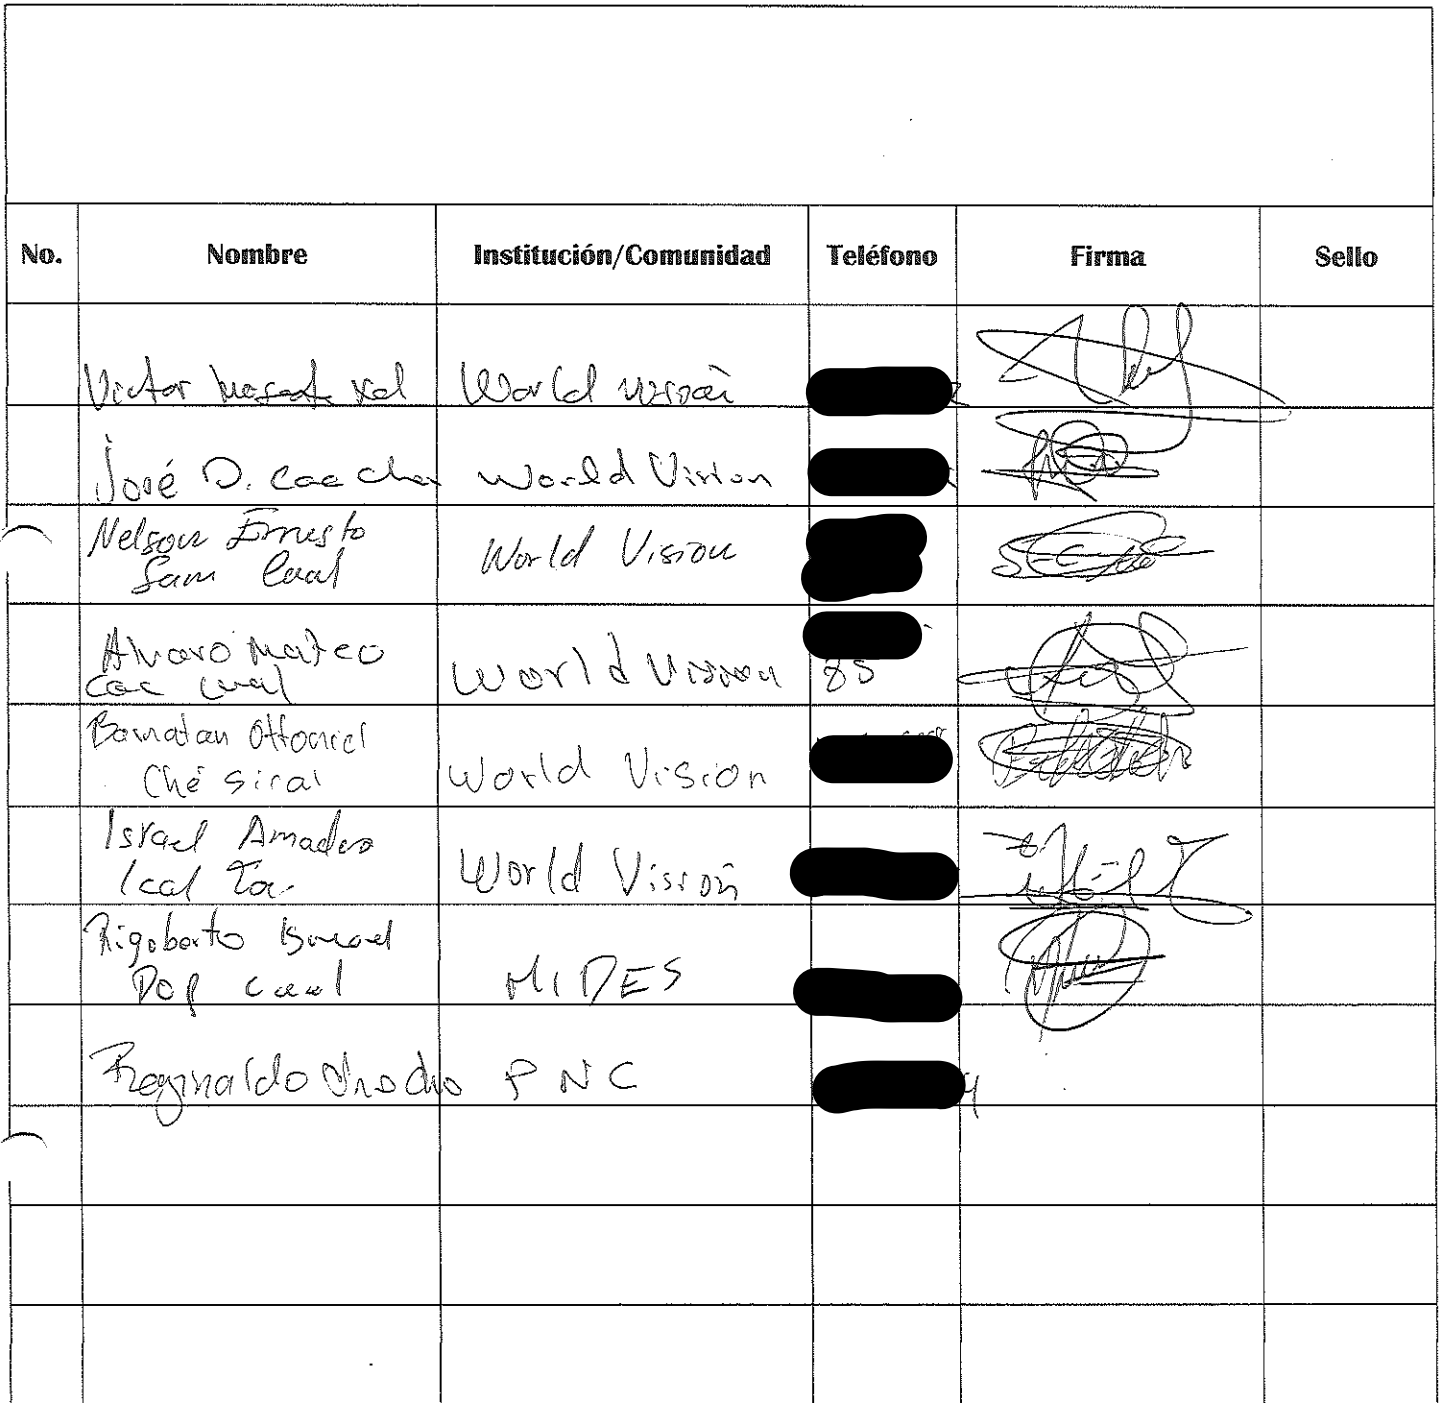 No. Nombre Institución/Comunidad Teléfono Firma Sello
Victor Xol World Visión
José D. Caa World Vision
Nelson Ernesto
Sam Caal World Vision
Alvaro Mateo
Cac Caal World Vision 85
Ottoniel
Ché World Vision
Israel Amadeo
Ical World Visión
Rigoberto Ismael
Pop Caal MIDES
Reginaldo PNC 4